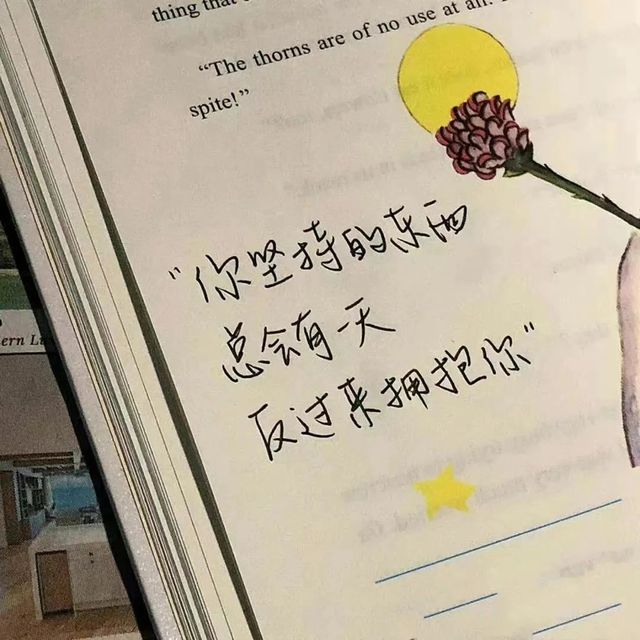 thing that
“The thorns are of no use at all.
spite!”
“你坚持的东西
总会有一天
反过来拥抱你”
ern Li